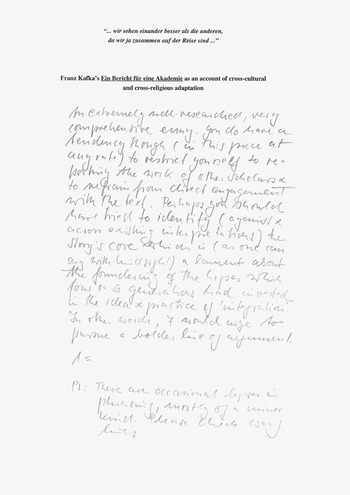 "... wir sehen einander besser als die anderen,
da wir ja zusammen auf der Reise sind ..."
Franz Kafka's Ein Bericht für eine Akademie as an account of cross-cultural
and cross-religious adaptation
An extremely well-researched, very
comprehensive essay. You do have a
tendency though (in this piece at
any rate) to restrict yourself to re-
porting the work of other scholars &
to refrain from direct engagement
with the text. Perhaps you should
have tried to identify (against &
across existing interpretations) the
story's core which is (as one can
say with hindsight) a lament about
the foundering of the hopes which
four or so generations had invested
in the idea & practice of 'integration'.
In other words, I would urge to
pursue a bolder line of argument.
PS: There are occasional lapses in
phrasing, mostly of a minor
kind. Please check